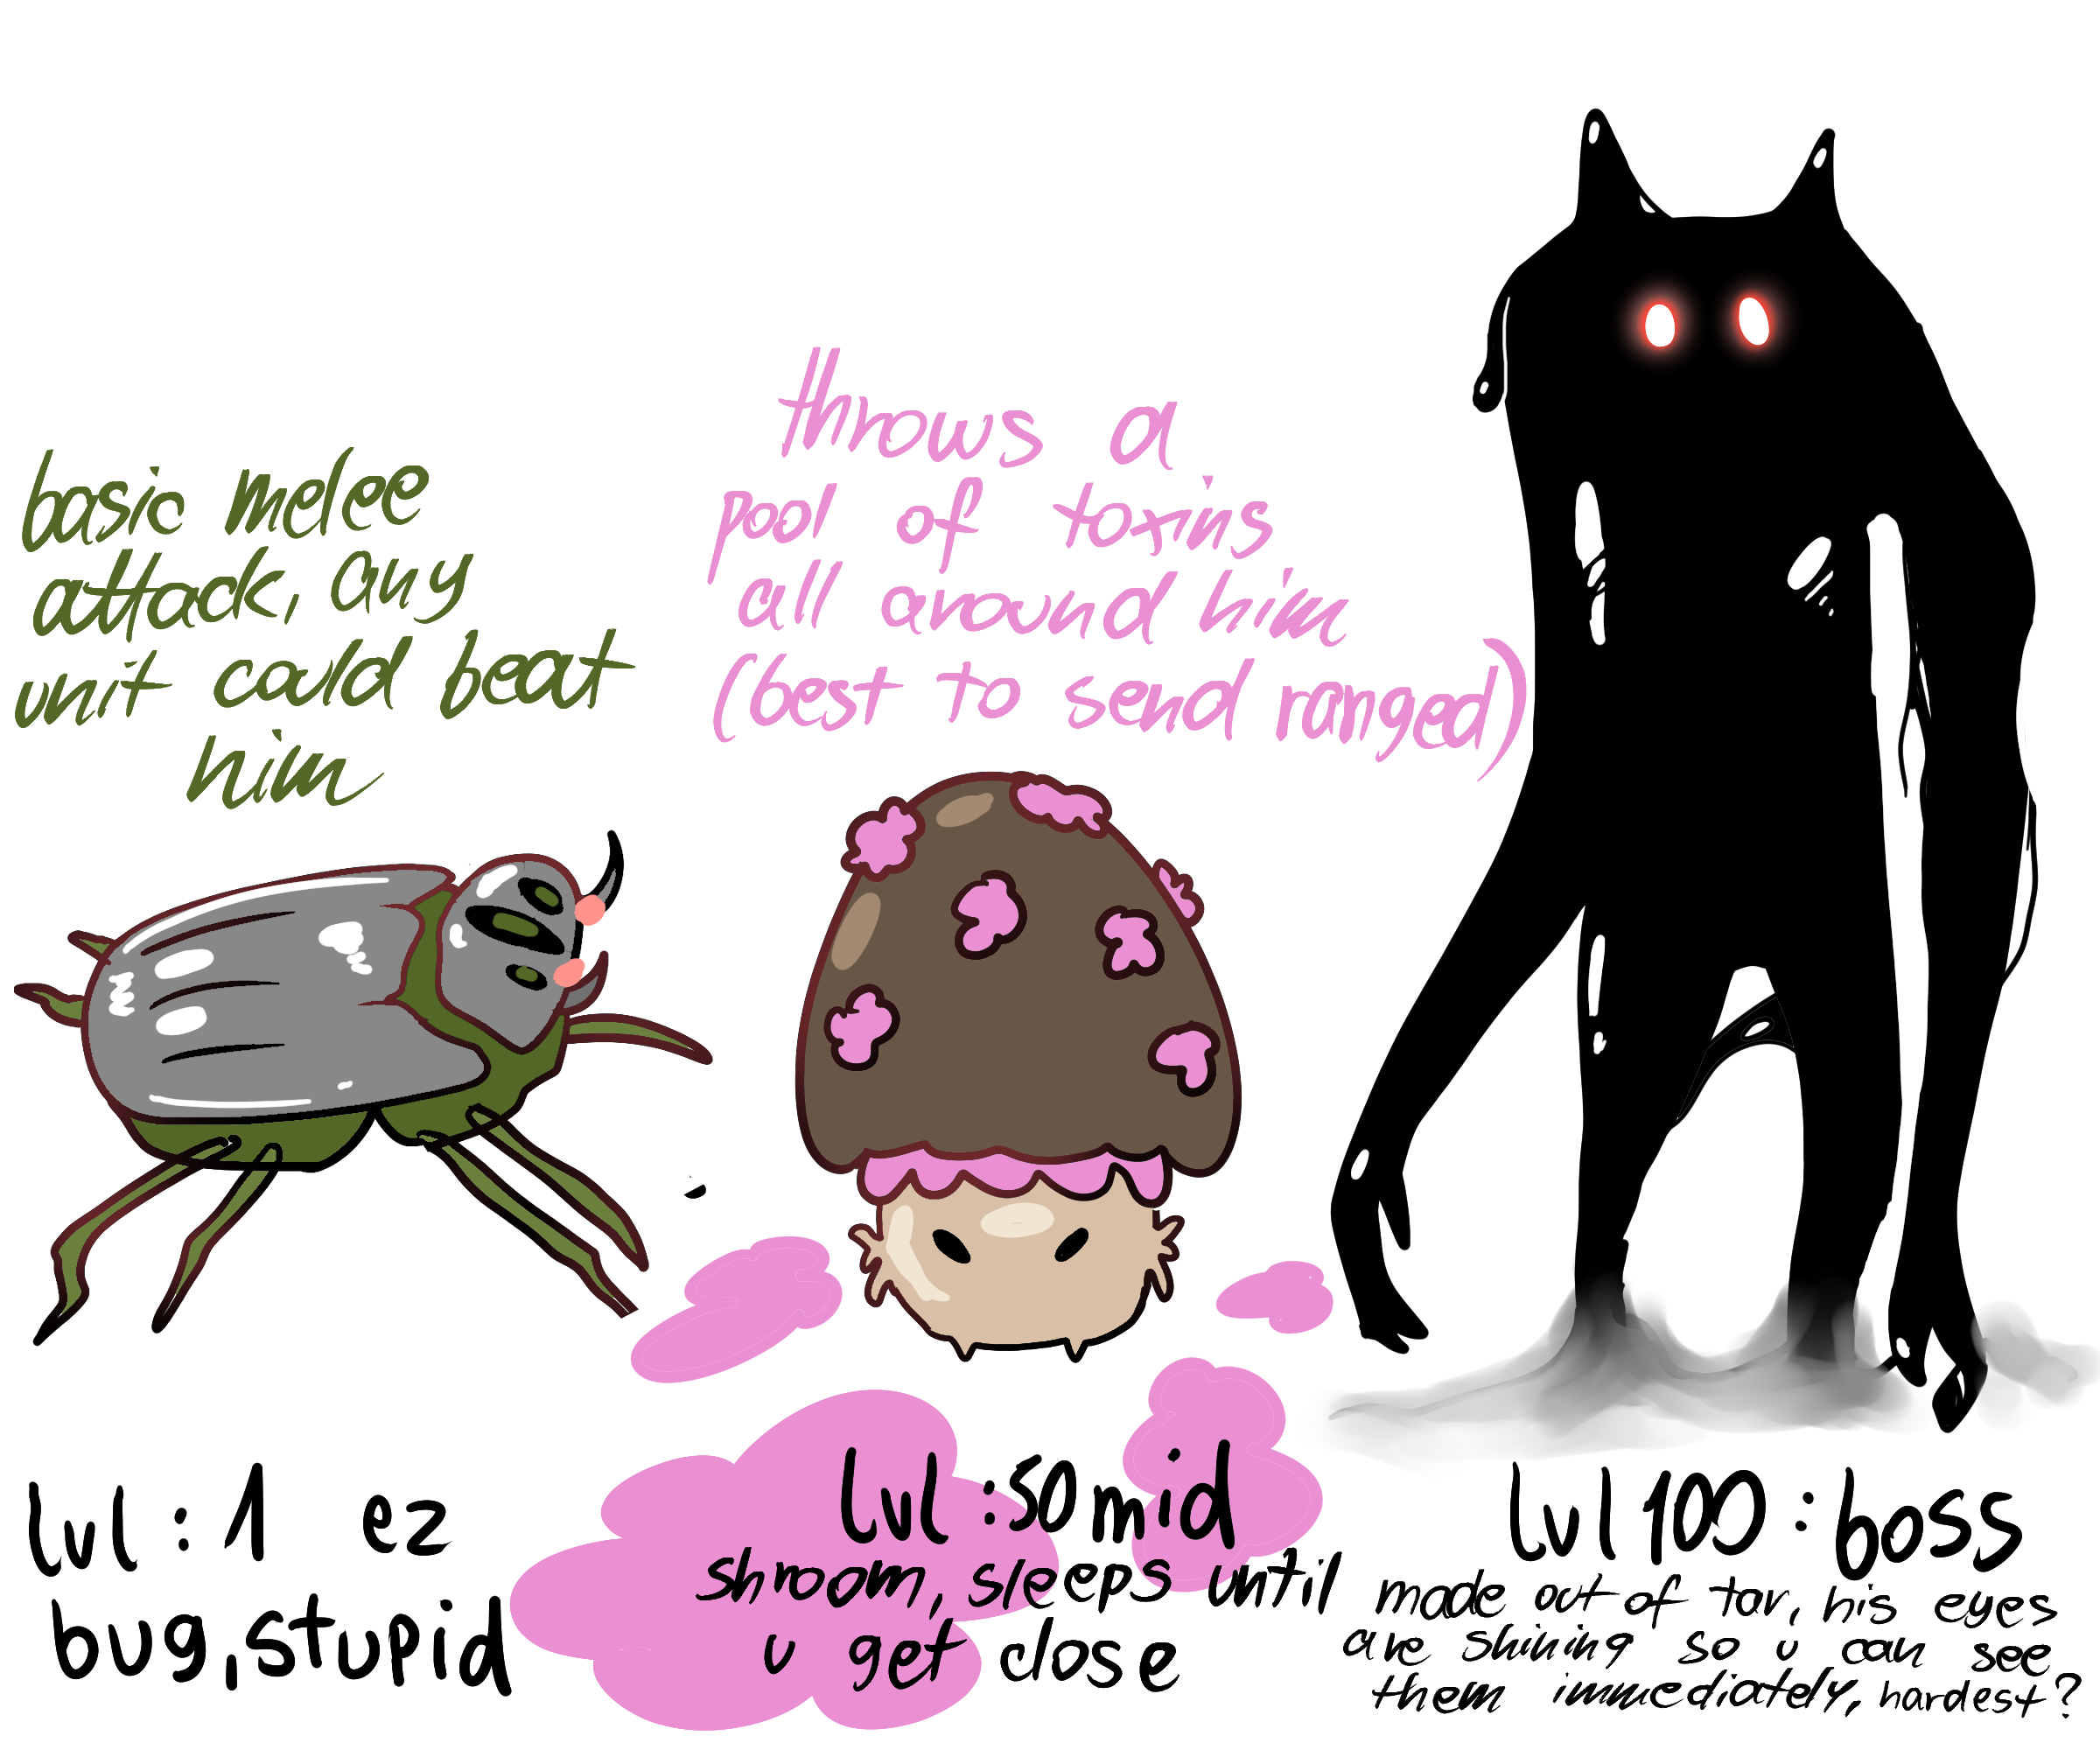 basic melee
attack, any
unit could beat
him
throws a
pool of toxins
all around him
(best to send ranged)
lvl : 1 ez
bug, stupid
lvl : 50 mid
shroom, sleeps until
u get close
lvl 100 : boss
made out of tar, his eyes
are shining so u can see
them immediately, hardest?